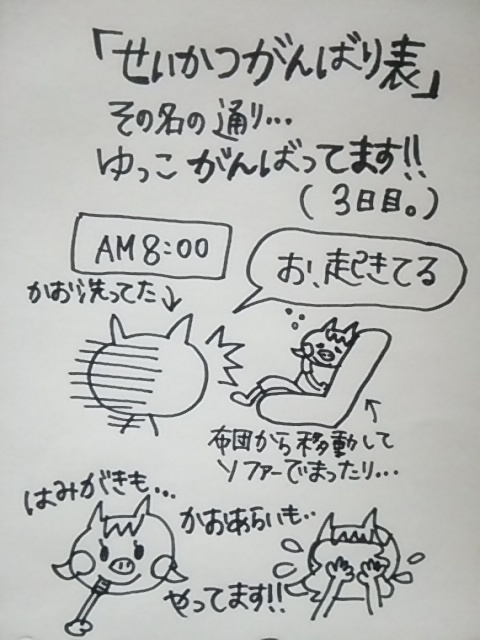 「せいかつがんばり表」
その名の通り…
ゆっこ がんばってます!!
(3日目。)
AM8:00
かお洗ってた↓
お、起きてる
布団から移動して
ソファーでまったり…
はみがきも…
かおあらいも…
やってます!!